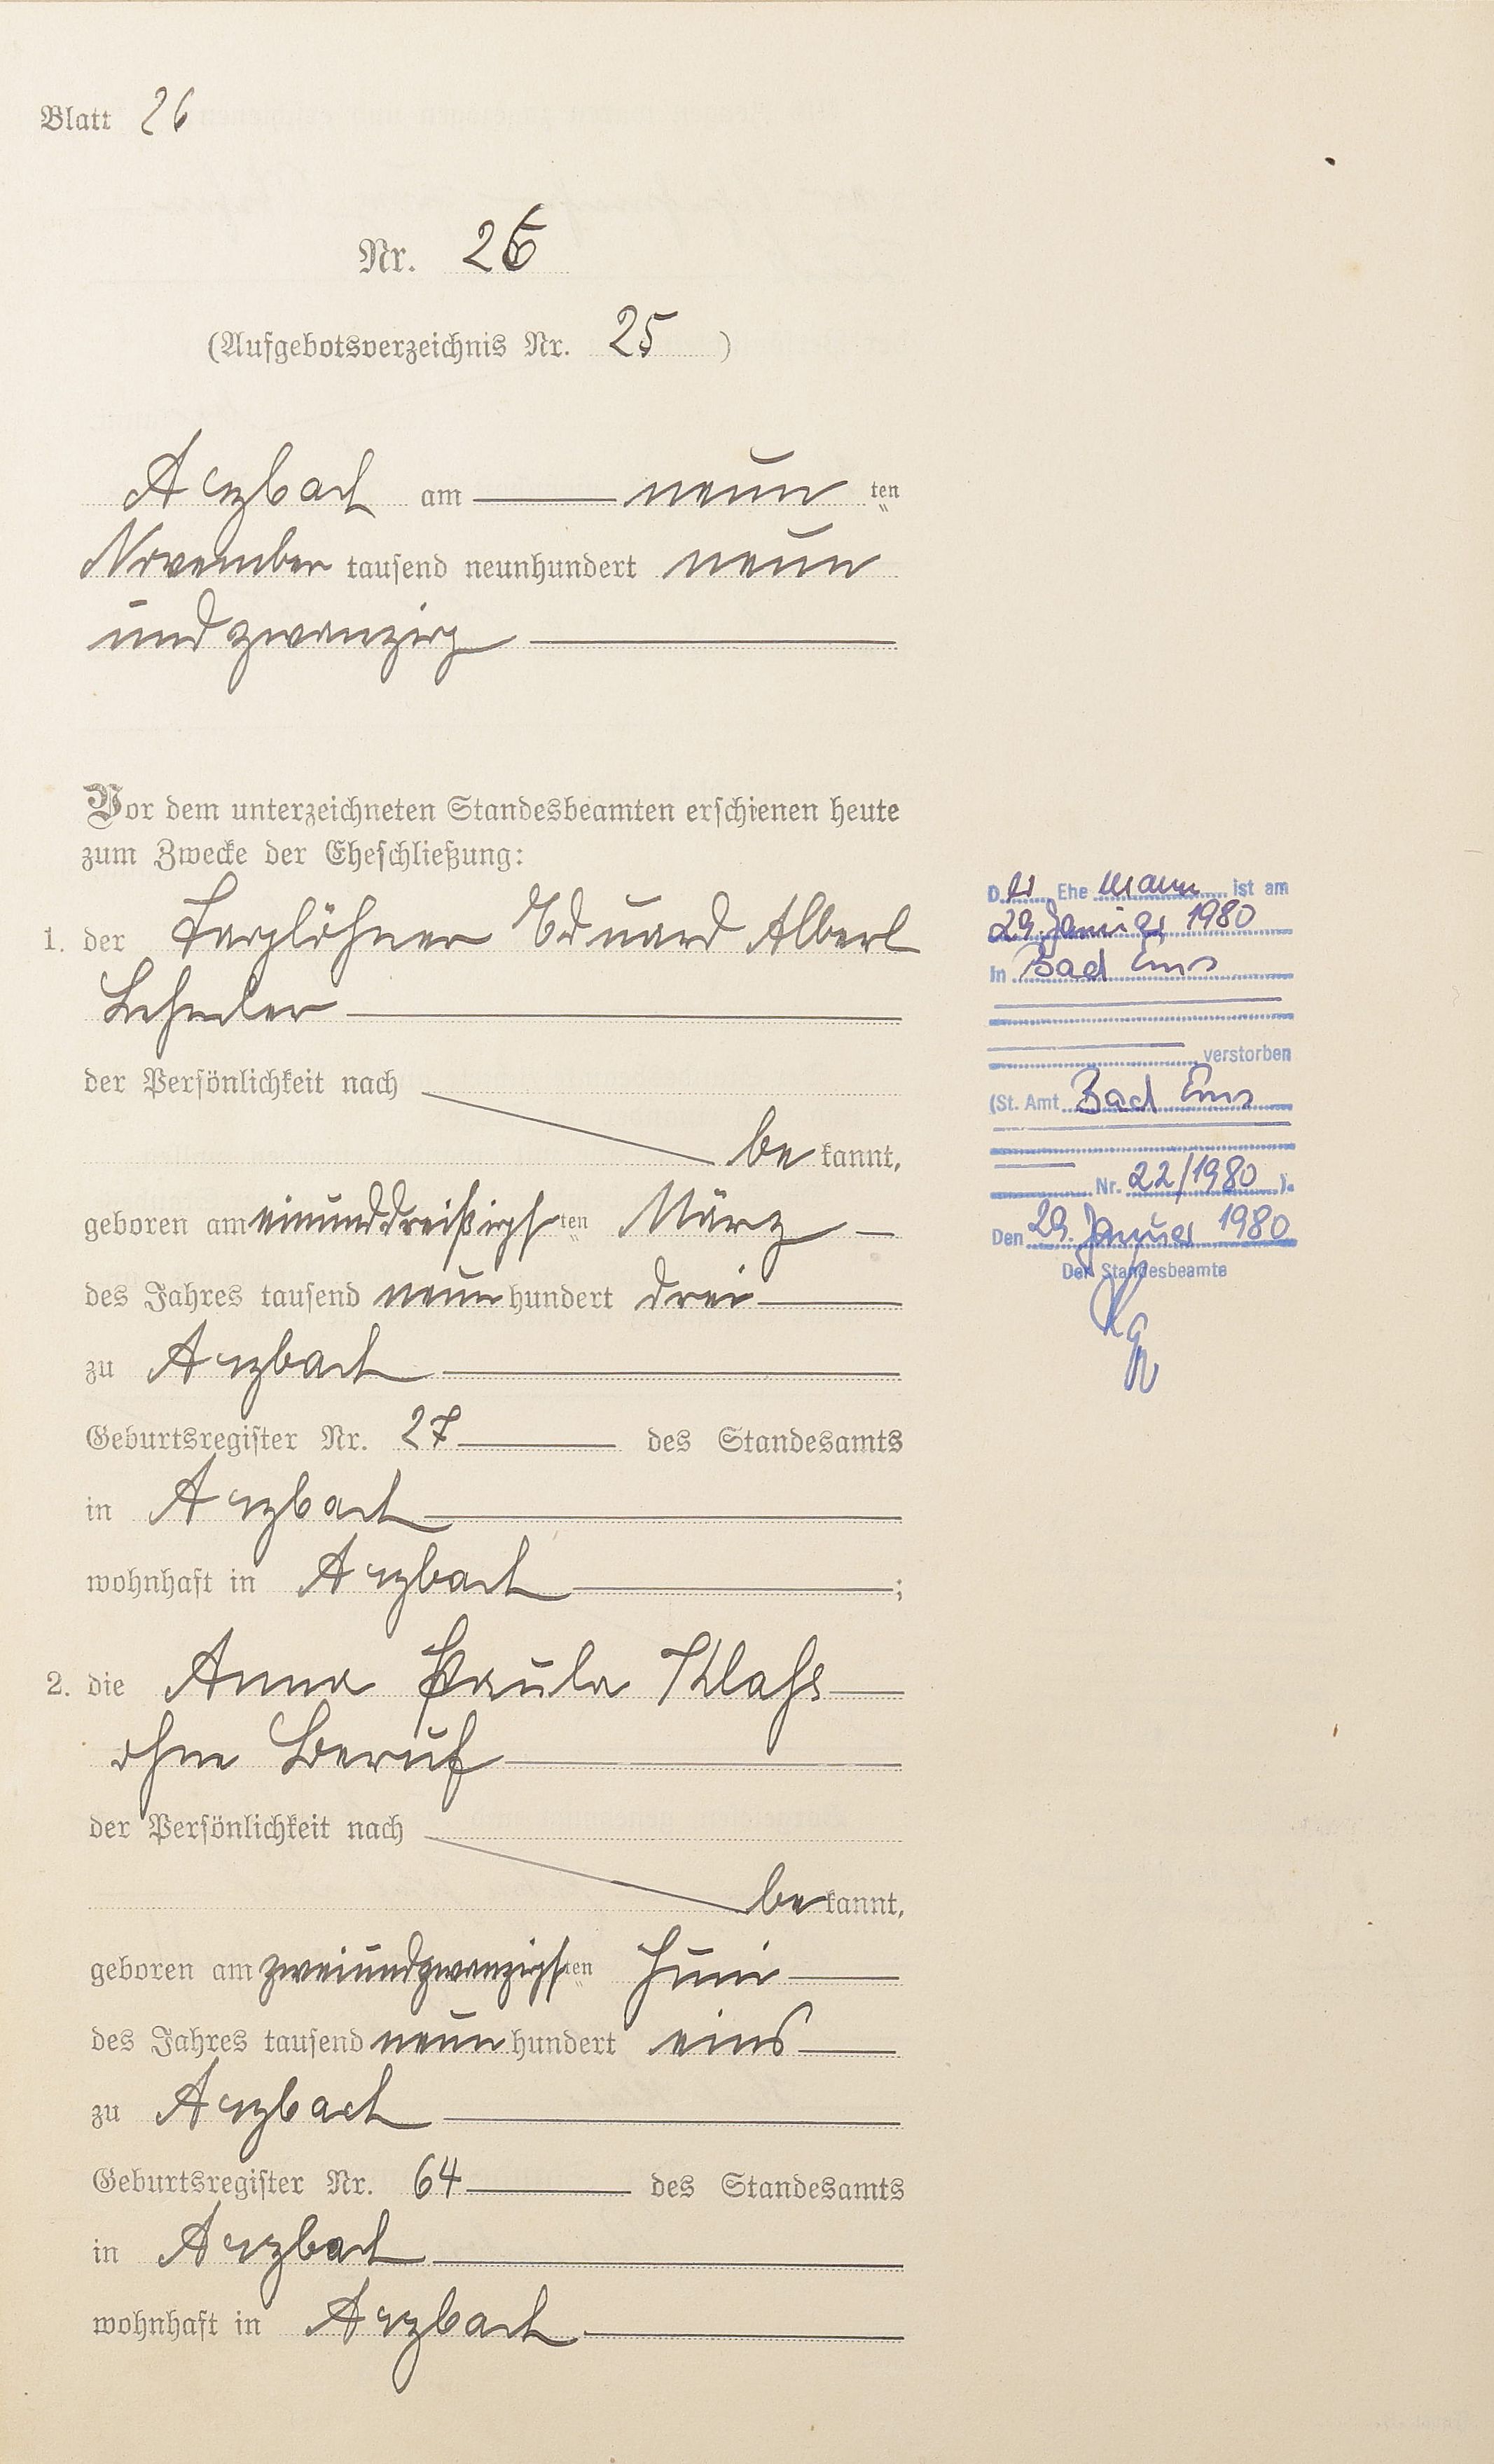 Blatt 26
Nr. 26
(Aufgebotsverzeichnis Nr. 25)
Arzbach am neun ten
November tausend neunhundert neun
und zwanzig
Vor dem unterzeichneten Standesbeamten erschienen heute
zum Zwecke der Eheschließung:
1. der Taglöhner Eduard Albert
der Persönlichkeit nach
be kannt,
geboren am einunddreißigsten März
des Jahres tausend neun hundert drei
zu Arzbach
Geburtsregister Nr. 27 des Standesamts
in Arzbach
wohnhaft in Arzbach ;
2. die Anna Paula Klaß
ohne Beruf
der Persönlichkeit nach
be kannt,
geboren am zweiundzwanzigsten Juni
des Jahres tausend neun hundert eins
zu Arzbach
Geburtsregister Nr. 64 des Standesamts
in Arzbach
wohnhaft in Arzbach
D er Ehe mann ist am
29. Januar 1980
in Bad Ems
verstorben
(St. Amt Bad Ems
Nr. 22/1980 ).
Den 29. Januar 1980
Der Standesbeamte